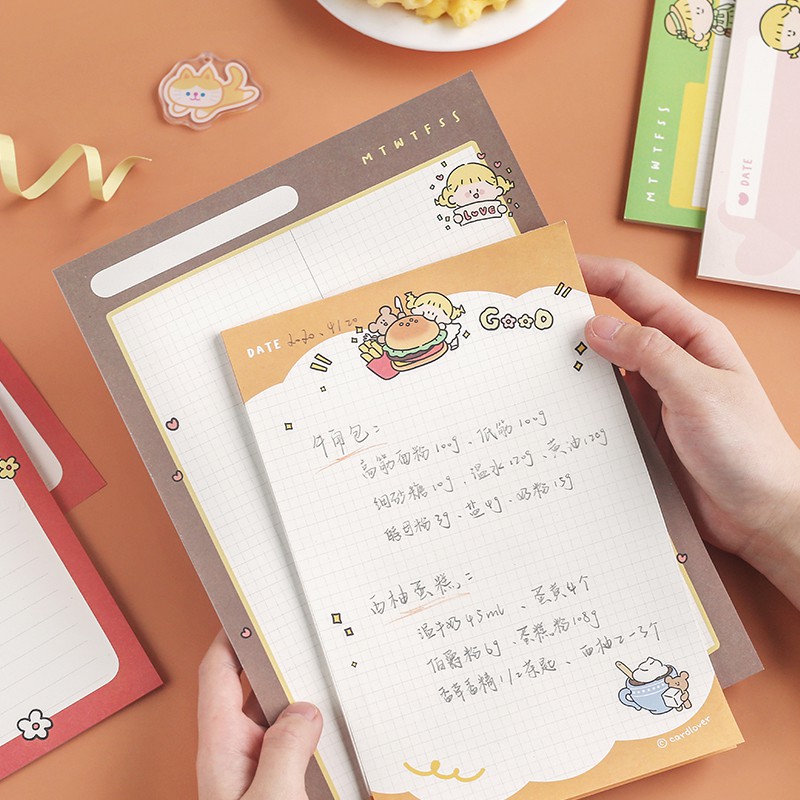 MTWTFSS
LOVE
MTWTFSS
DATE
DATE 2020、4/20
GOOD
牛角包：
高筋面粉100g、低筋100g
细砂糖10g、温水120g、黄油120g
酵母粉3g、盐4g、奶粉15g
西柚蛋糕：
温牛奶45ml、蛋黄4个
伯爵粉6g、蛋糕粉108g
香草香精1/2茶匙、西柚2-3个
© cardlover